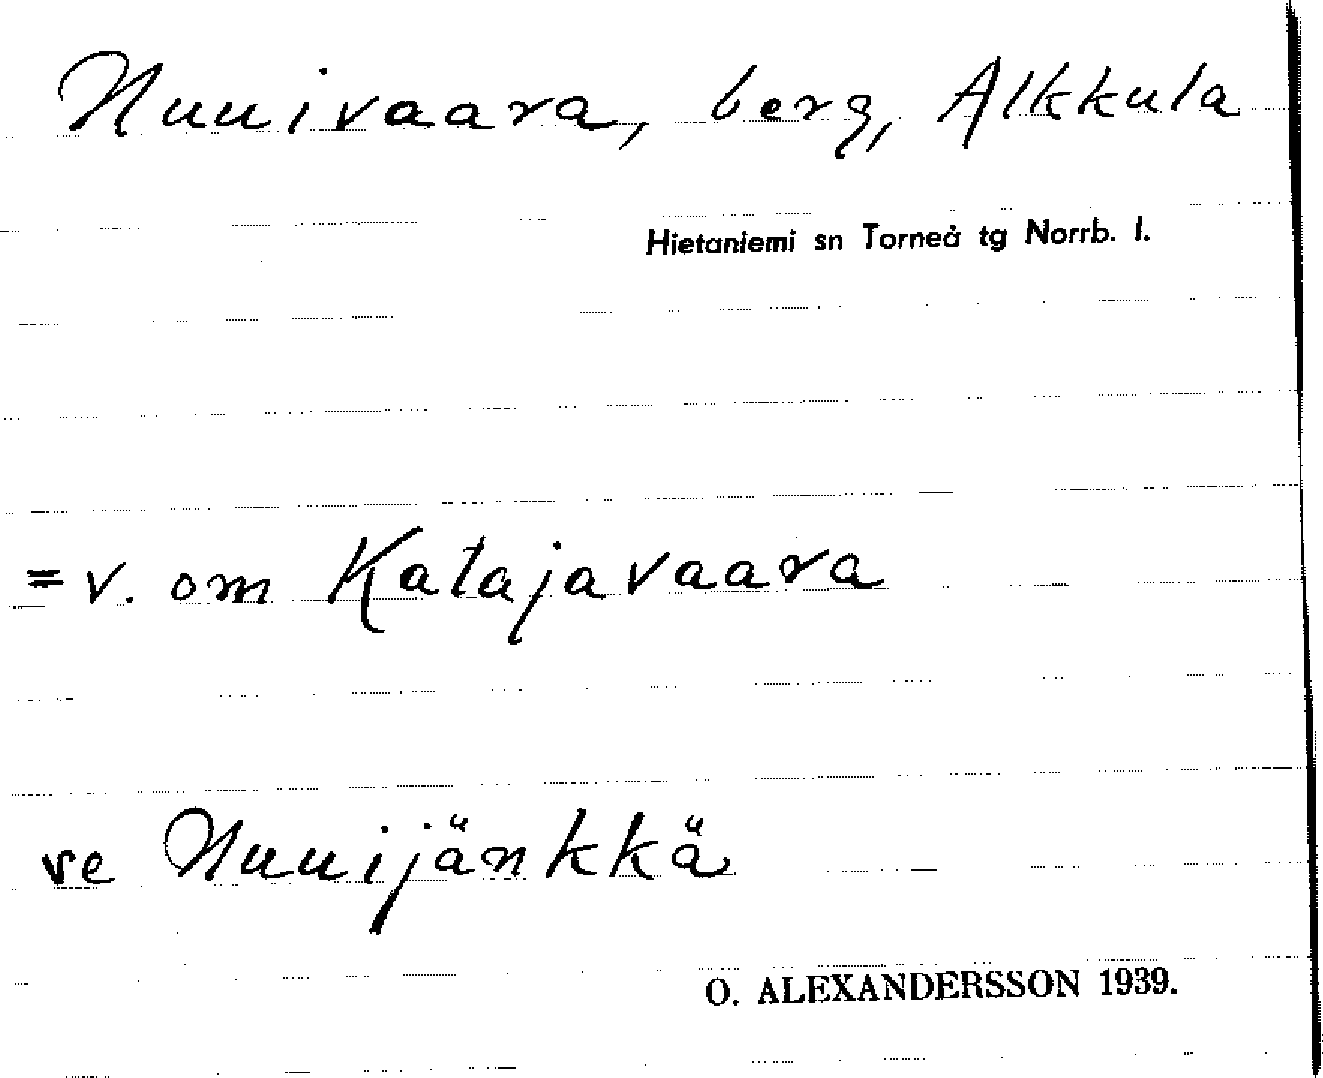 Nuuivaara, berg, Alkkula
Hietaniemi sn Torneå tg Norrb. l.
= v. om Katajavaara
ve Nuuijänkkä
O. ALEXANDERSSON 1939.